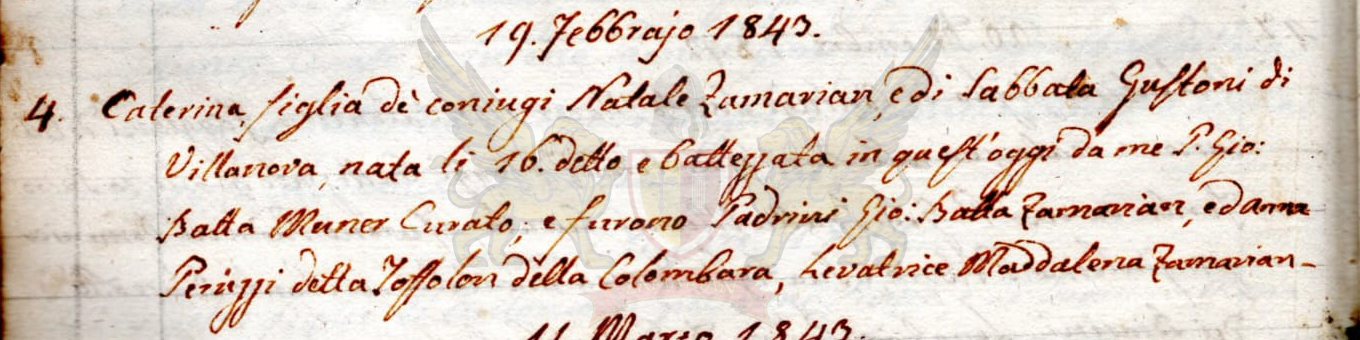 19. Febbrajo 1843.
4. Caterina, figlia dè coniugi Natale Zamarian, e di Sabbata Gustoni di
Villanova, nata li 16. detto e battezzata in quest'oggi da me P. Gio:
Batta Muner Curato; e furono Padrini Gio: Batta Zamarian, ed Anna
Peruzzi detta Toffolon della Colombara, Levatrice Maddalena Zamarian-
11. Marzo 1843.